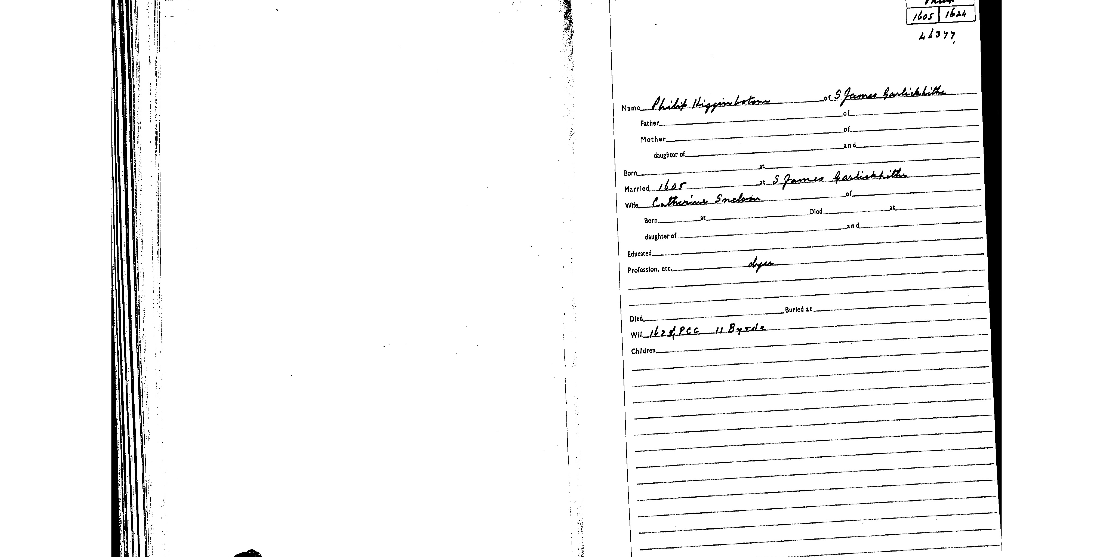 1605 1624
Name Philip Higginbotom of S James Garlickhithe
Father of
Mother of
daughter of and
Born at
Married 1605 at S James Garlickhithe
Wife Catherine of
Born at Died at
daughter of and
Educated
Profession, etc. dyer
Died Buried at
Will PCC 11 Byrde
Children